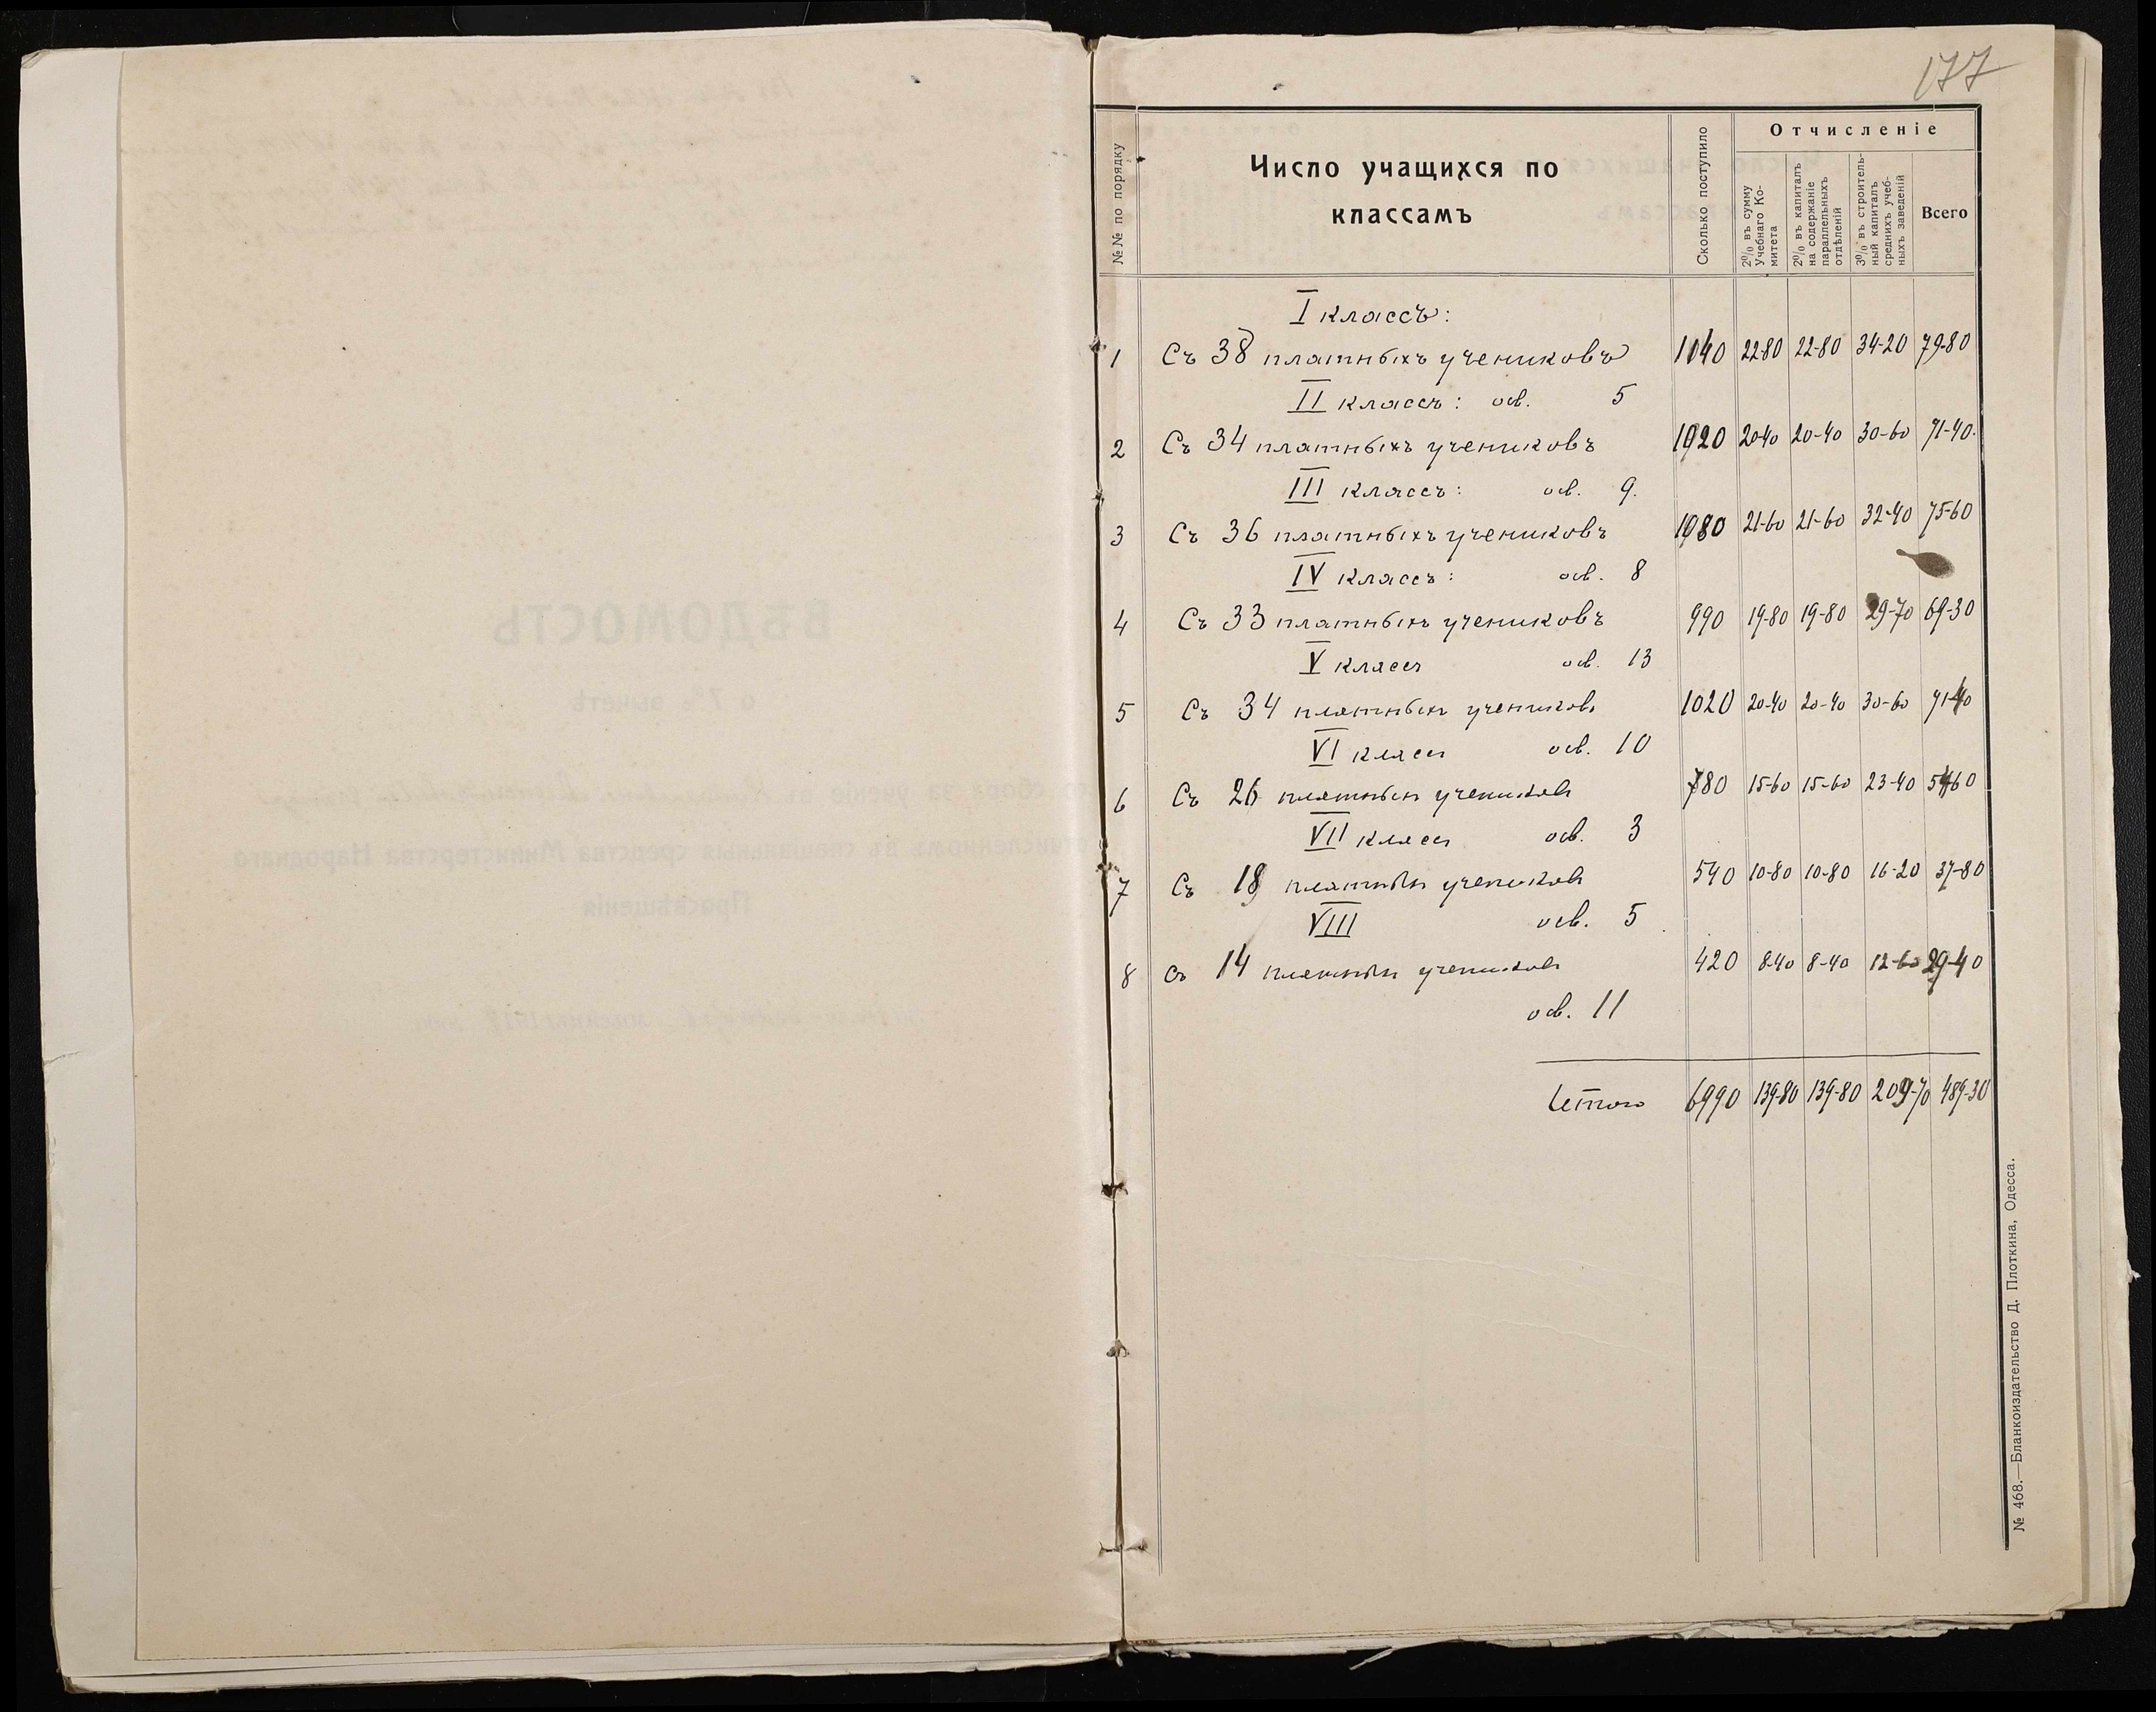 177
№№ по порядку
Число учащихся по
классамъ
Сколько поступило
Отчисленіе
2% въ сумму
Учебнаго Ко-
митета
2% въ капиталъ
на содержаніе
параллельныхъ
отдѣленій
3% въ строитель-
ный капиталъ
среднихъ учеб-
ныхъ заведеній
Всего
I классъ:
1 Съ 38 платныхъ учениковъ 1140 22-80 22-80 34-20 79-80
II классъ: осв. 5
2 Съ 34 платныхъ учениковъ 1020 20-40 20-40 30-60 71-40
III классъ: осв. 9.
3 Съ 36 платныхъ учениковъ 1080 21-60 21-60 32-40 75-60
IV классъ: осв. 8
4 Съ 33 платныхъ учениковъ 990 19-80 19-80 29-70 69-30
V классъ осв. 13
5 Съ 34 платныхъ учениковъ 1020 20-40 20-40 30-60 71-40
VI классъ осв. 10
6 Съ 26 платныхъ учениковъ 780 15-60 15-60 23-40 54-60
VII классъ осв. 3
7 Съ 18 платныхъ учениковъ 540 10-80 10-80 16-20 37-80
VIII осв. 5
8 съ 14 платныхъ учениковъ 420 8-40 8-40 12-60 29-40
осв. 11
Итого 6990 139-80 139-80 209-70 489-30
№ 468.—Бланкоиздательство Д. Плоткина, Одесса.